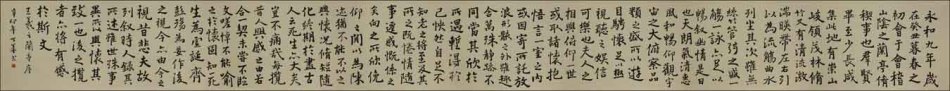 永和九年歲
在癸丑暮春之
初會于會稽
山陰之蘭亭脩
禊事也羣賢
畢至少長咸
集此地有崇山
峻領茂林脩
竹又有清流激
湍暎帶左右引
以為流觴曲水
列坐其次雖無
絲竹管弦之盛一
觴一詠亦足以
暢敘幽情是日
也天朗氣清惠
風和暢仰觀宇
宙之大俯察品
類之盛所以遊
目騁懷足以極
視聽之娛信
可樂也夫人之
相與俯仰一世
或取諸懷抱
悟言一室之內
或因寄所託放
浪形骸之外雖趣
舍萬殊靜躁不
同當其欣於
所遇暫得於己
快然自足不
知老之將至及其
所之既惓情隨
事遷感慨係之
矣向之所欣俛
仰之間以為陳
迹猶不能不以之
興懷況脩短隨
化終期於盡古
人云死生亦大矣
豈不痛哉每攬
昔人興感之由若
合一契未嘗不臨
文嗟悼不能喻
之於懷固知一死
生為虛誕齊
彭殤為妄作後
之視今亦由今之
視昔悲夫故
列敘時人錄其
所述雖世殊事
異所以興懷其
致一也後之攬
者亦將有感
於斯文